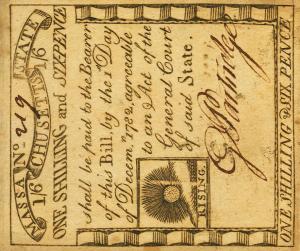 MASSA CHUSETTS STATE
No. 219
1/6 1/6
ONE SHILLING and SIXPENCE
shall be paid to the Bearer
of this Bill, by the 1st Day
of Decemr. 1782, agreeable
to an Act of the
General Court
of said State.
RISING
ONE SHILLING & SIX PENCE